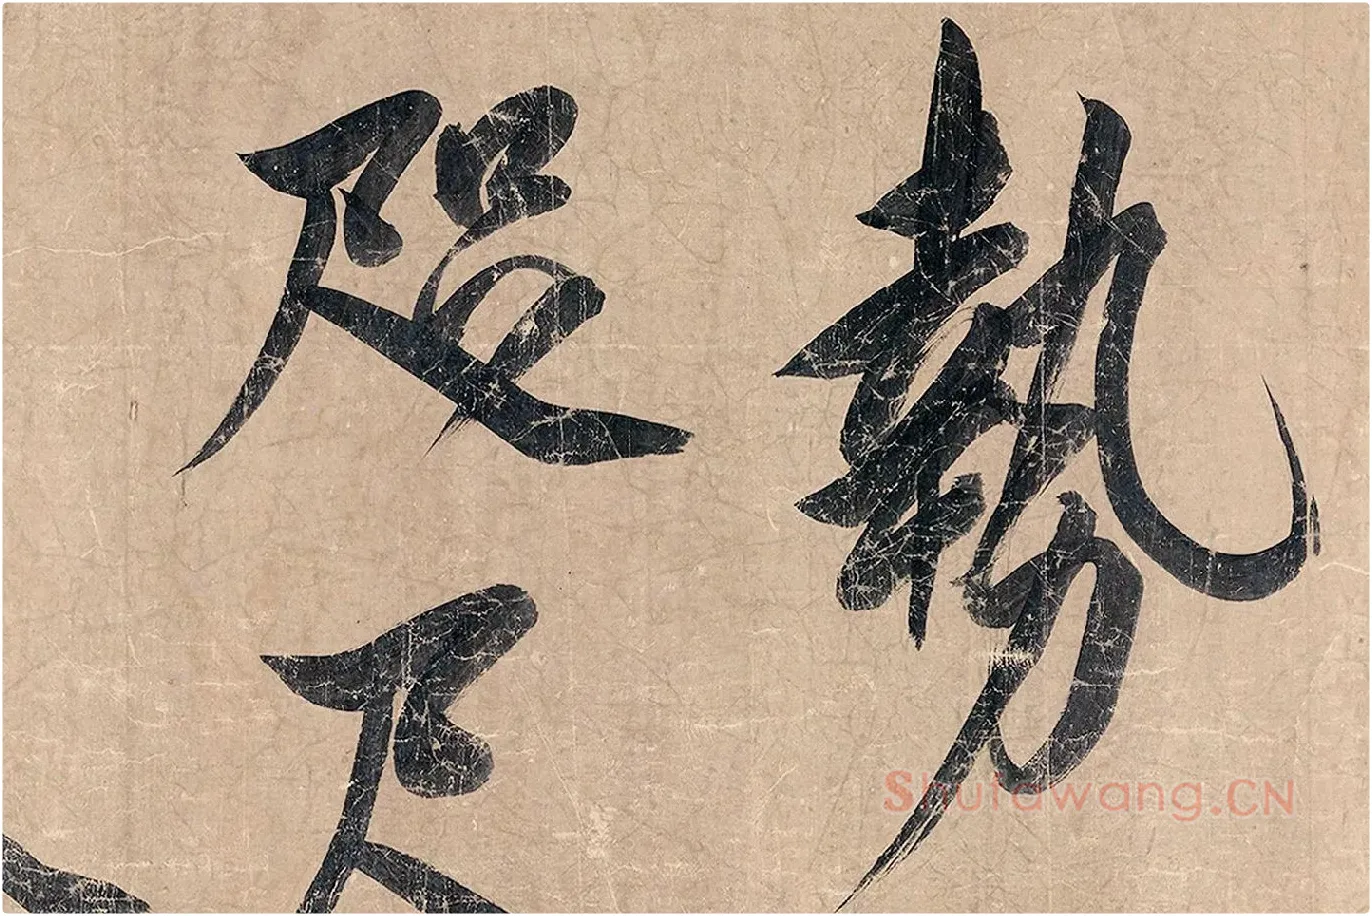 勢
咫尺
Shufawang.CN